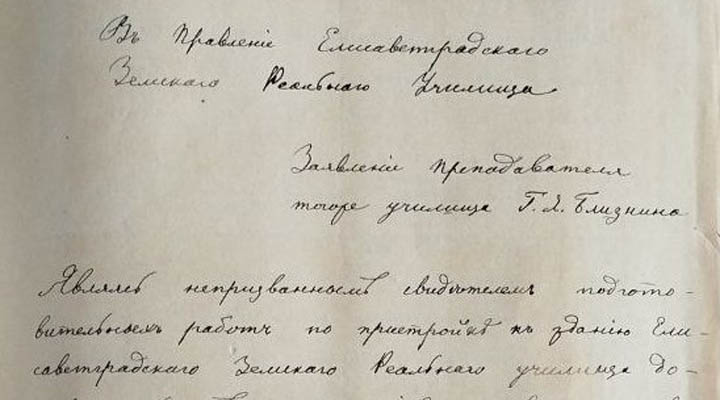 Въ Правленіе Елисаветградскаго
Земскаго Реальнаго Училища
Заявленіе преподавателя
тогоже училища Г. Я. Близнина
Являясь непризваннымъ свидѣтелемъ подгото-
вительныхъ работъ по пристройкѣ къ зданію Ели-
саветградскаго Земскаго Реальнаго училища до-